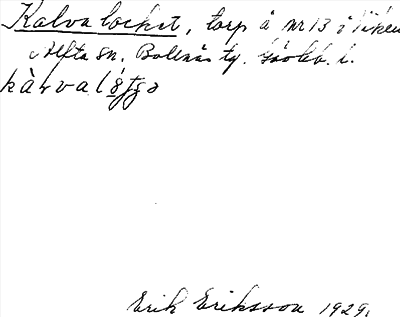 Kalvalocket, torp å nr 13 i Viken
Alfta sn. Bollnäs tg. Gävleb. l.
Erik Eriksson 1929.